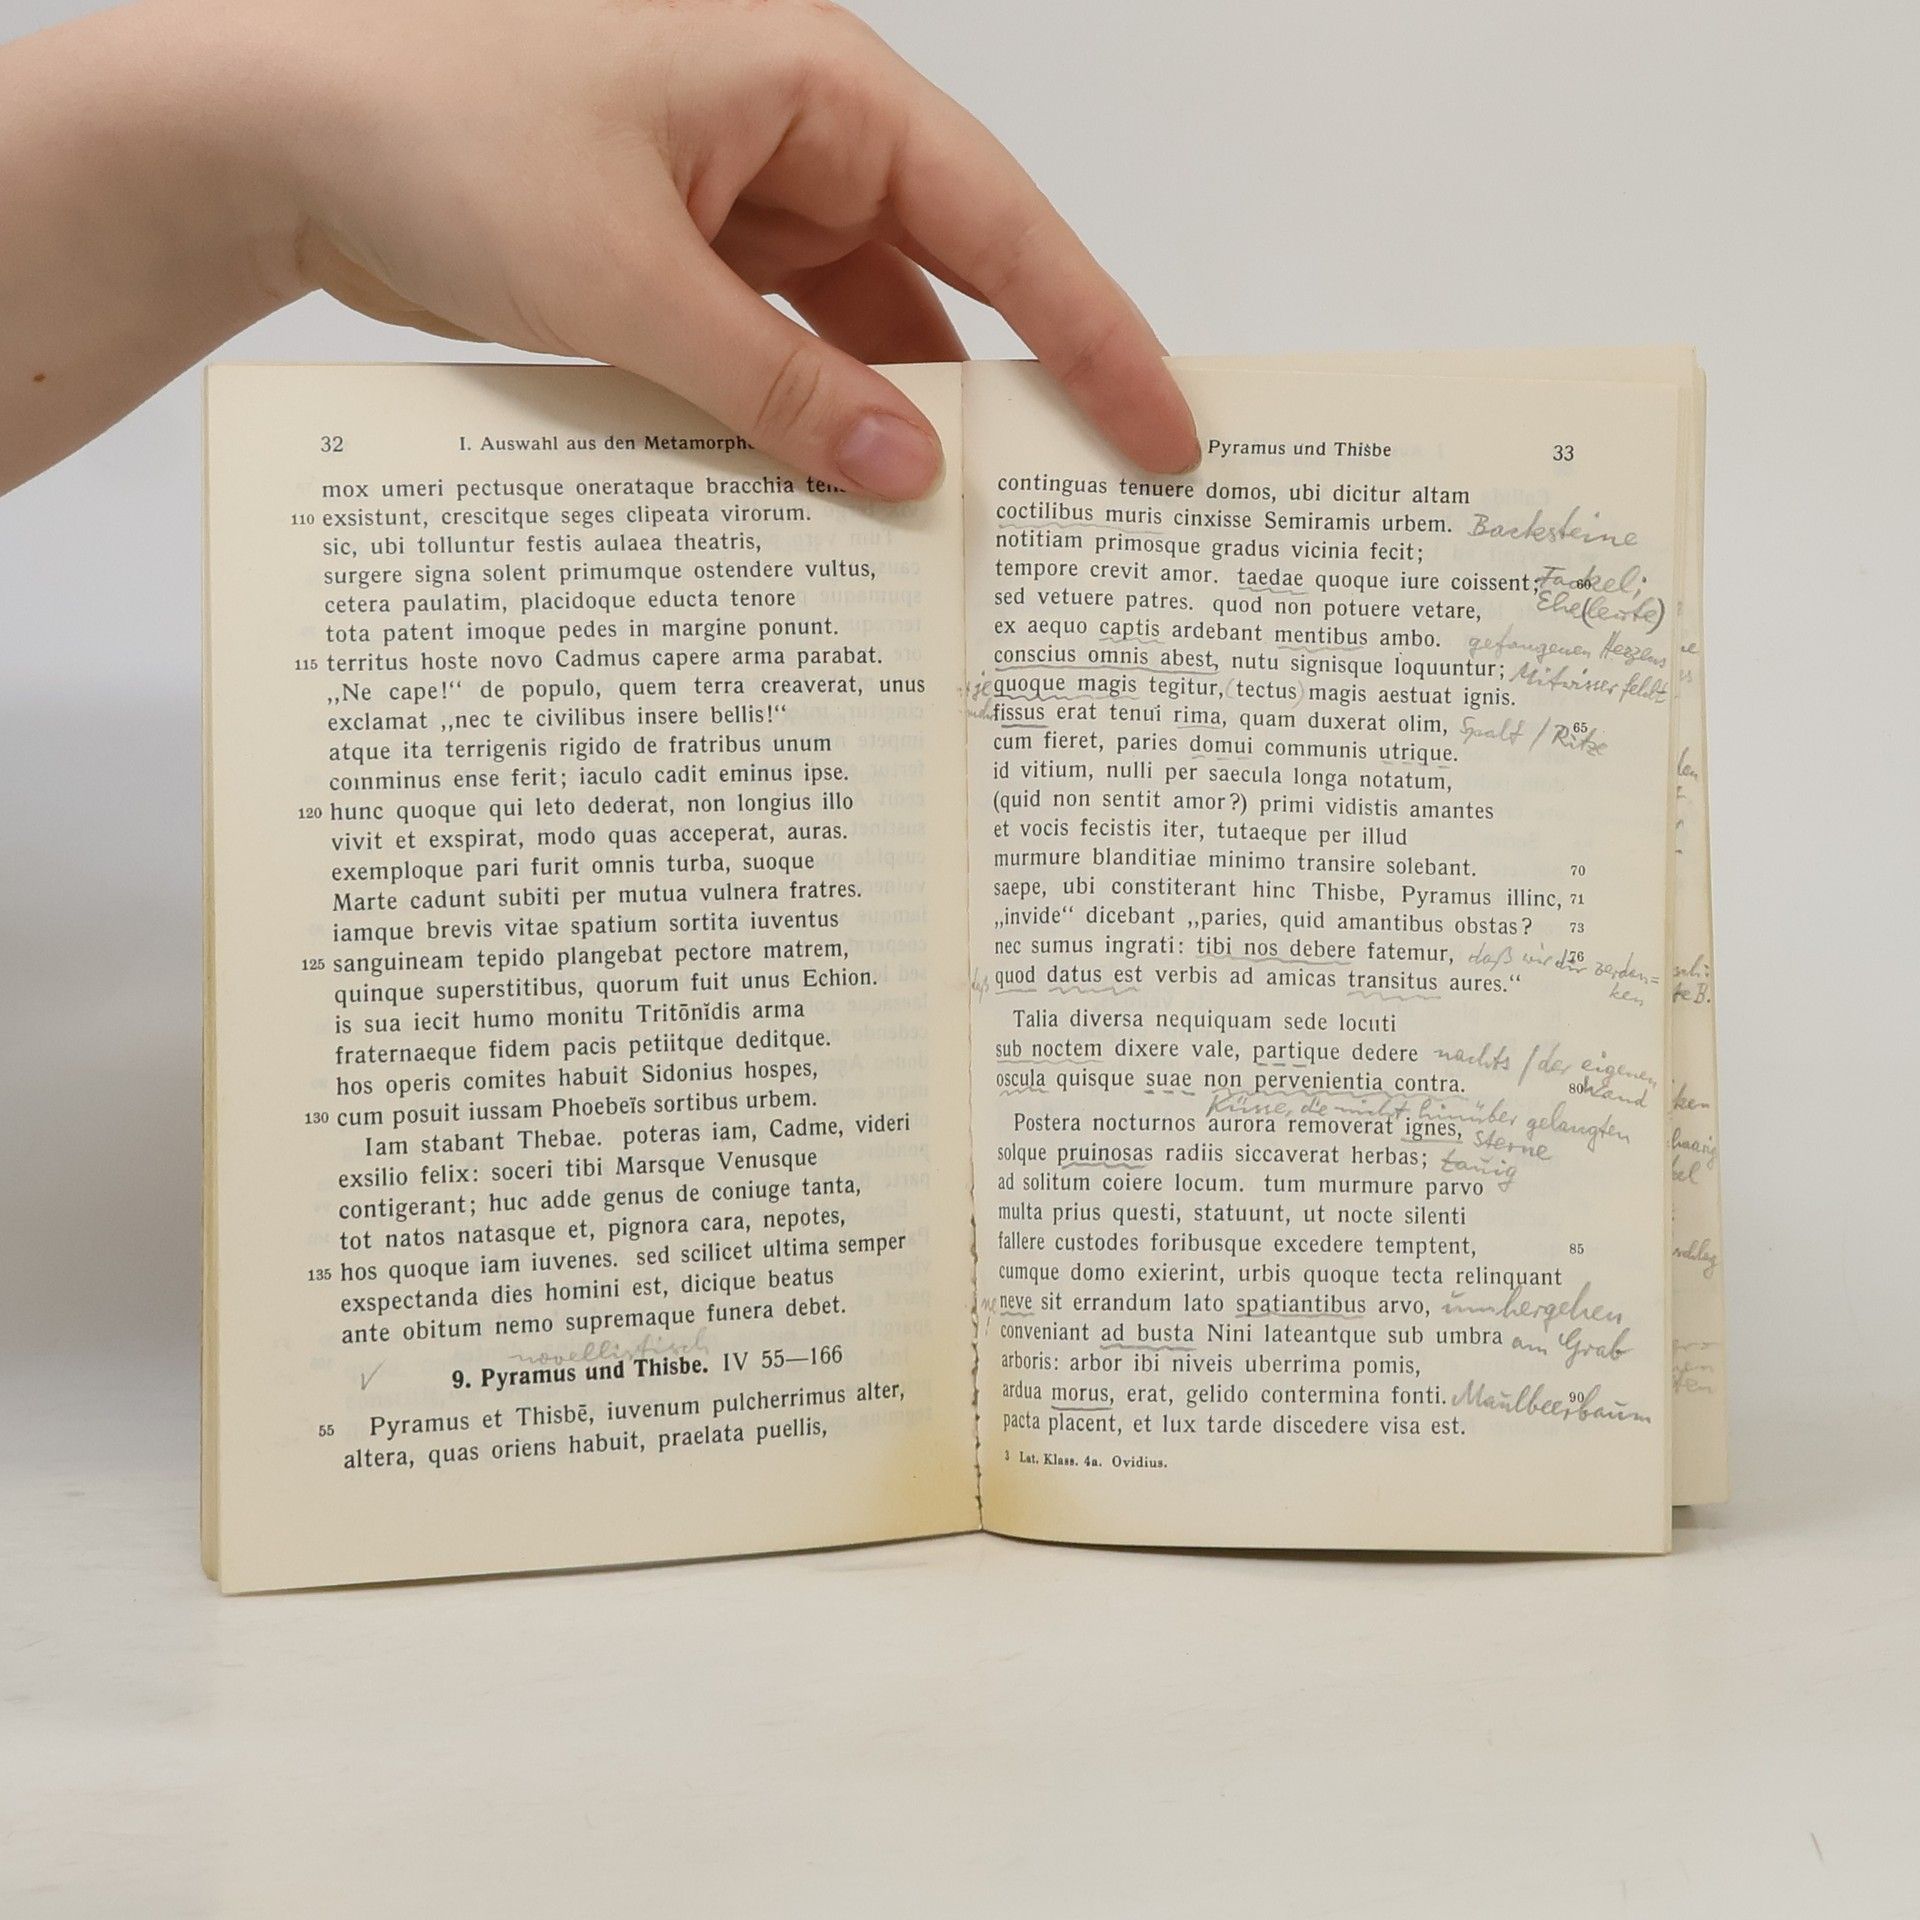 32
I. Auswahl aus den
mox umeri pectusque onerataque bracchia
110 exsistunt, crescitque seges clipeata virorum.
sic, ubi tolluntur festis aulaea theatris,
surgere signa solent primumque ostendere vultus,
cetera paulatim, placidoque educta tenore
tota patent imoque pedes in margine ponunt.
115 territus hoste novo Cadmus capere arma parabat.
„Ne cape!“ de populo, quem terra creaverat, unus
exclamat „nec te civilibus insere bellis!“
atque ita terrigenis rigido de fratribus unum
comminus ense ferit; iaculo cadit eminus ipse.
120 hunc quoque qui leto dederat, non longius illo
vivit et exspirat, modo quas acceperat, auras.
exemploque pari furit omnis turba, suoque
Marte cadunt subiti per mutua vulnera fratres.
iamque brevis vitae spatium sortita iuventus
125 sanguineam tepido plangebat pectore matrem,
quinque superstitibus, quorum fuit unus Echion.
is sua iecit humo monitu Tritōnĭdis arma
fraternaeque fidem pacis petiitque deditque.
hos operis comites habuit Sidonius hospes,
130 cum posuit iussam Phoebeïs sortibus urbem.
Iam stabant Thebae. poteras iam, Cadme, videri
exsilio felix: soceri tibi Marsque Venusque
contigerant; huc adde genus de coniuge tanta,
tot natos natasque et, pignora cara, nepotes,
135 hos quoque iam iuvenes. sed scilicet ultima semper
exspectanda dies homini est, dicique beatus
ante obitum nemo supremaque funera debet.
novellistisch
9. Pyramus und Thisbe. IV 55—166
55 Pyramus et Thisbē, iuvenum pulcherrimus alter,
altera, quas oriens habuit, praelata puellis,
Pyramus und Thisbe 33
continguas tenuere domos, ubi dicitur altam
coctilibus muris cinxisse Semiramis urbem. Backsteine
notitiam primosque gradus vicinia fecit;
tempore crevit amor. taedae quoque iure coissent; 60 Fackel;
sed vetuere patres. quod non potuere vetare, Ehe(leute)
ex aequo captis ardebant mentibus ambo. gefangenen Herzens
conscius omnis abest, nutu signisque loquuntur; Mitwisser fehlt
je quoque magis tegitur, (tectus) magis aestuat ignis.
fissus erat tenui rima, quam duxerat olim, 65 Spalt / Ritze
cum fieret, paries domui communis utrique.
id vitium, nulli per saecula longa notatum,
(quid non sentit amor?) primi vidistis amantes
et vocis fecistis iter, tutaeque per illud
murmure blanditiae minimo transire solebant. 70
saepe, ubi constiterant hinc Thisbe, Pyramus illinc, 71
„invide“ dicebant „paries, quid amantibus obstas? 73
nec sumus ingrati: tibi nos debere fatemur, 76 daß wir dir verdan=
ken
daß quod datus est verbis ad amicas transitus aures.“
Talia diversa nequiquam sede locuti
sub noctem dixere vale, partique dedere nachts / der eigenen
oscula quisque suae non pervenientia contra. 80 Wand
Küsse, die nicht hinüber gelangten
Postera nocturnos aurora removerat ignes, Sterne
solque pruinosas radiis siccaverat herbas; tauig
ad solitum coiere locum. tum murmure parvo
multa prius questi, statuunt, ut nocte silenti
fallere custodes foribusque excedere temptent, 85
cumque domo exierint, urbis quoque tecta relinquant
ne neve sit errandum lato spatiantibus arvo, umhergehen
conveniant ad busta Nini lateantque sub umbra am Grab
arboris: arbor ibi niveis uberrima pomis,
ardua morus, erat, gelido contermina fonti. 90 Maulbeerbaum
pacta placent, et lux tarde discedere visa est.
3 Lat. Klass. 4a. Ovidius.